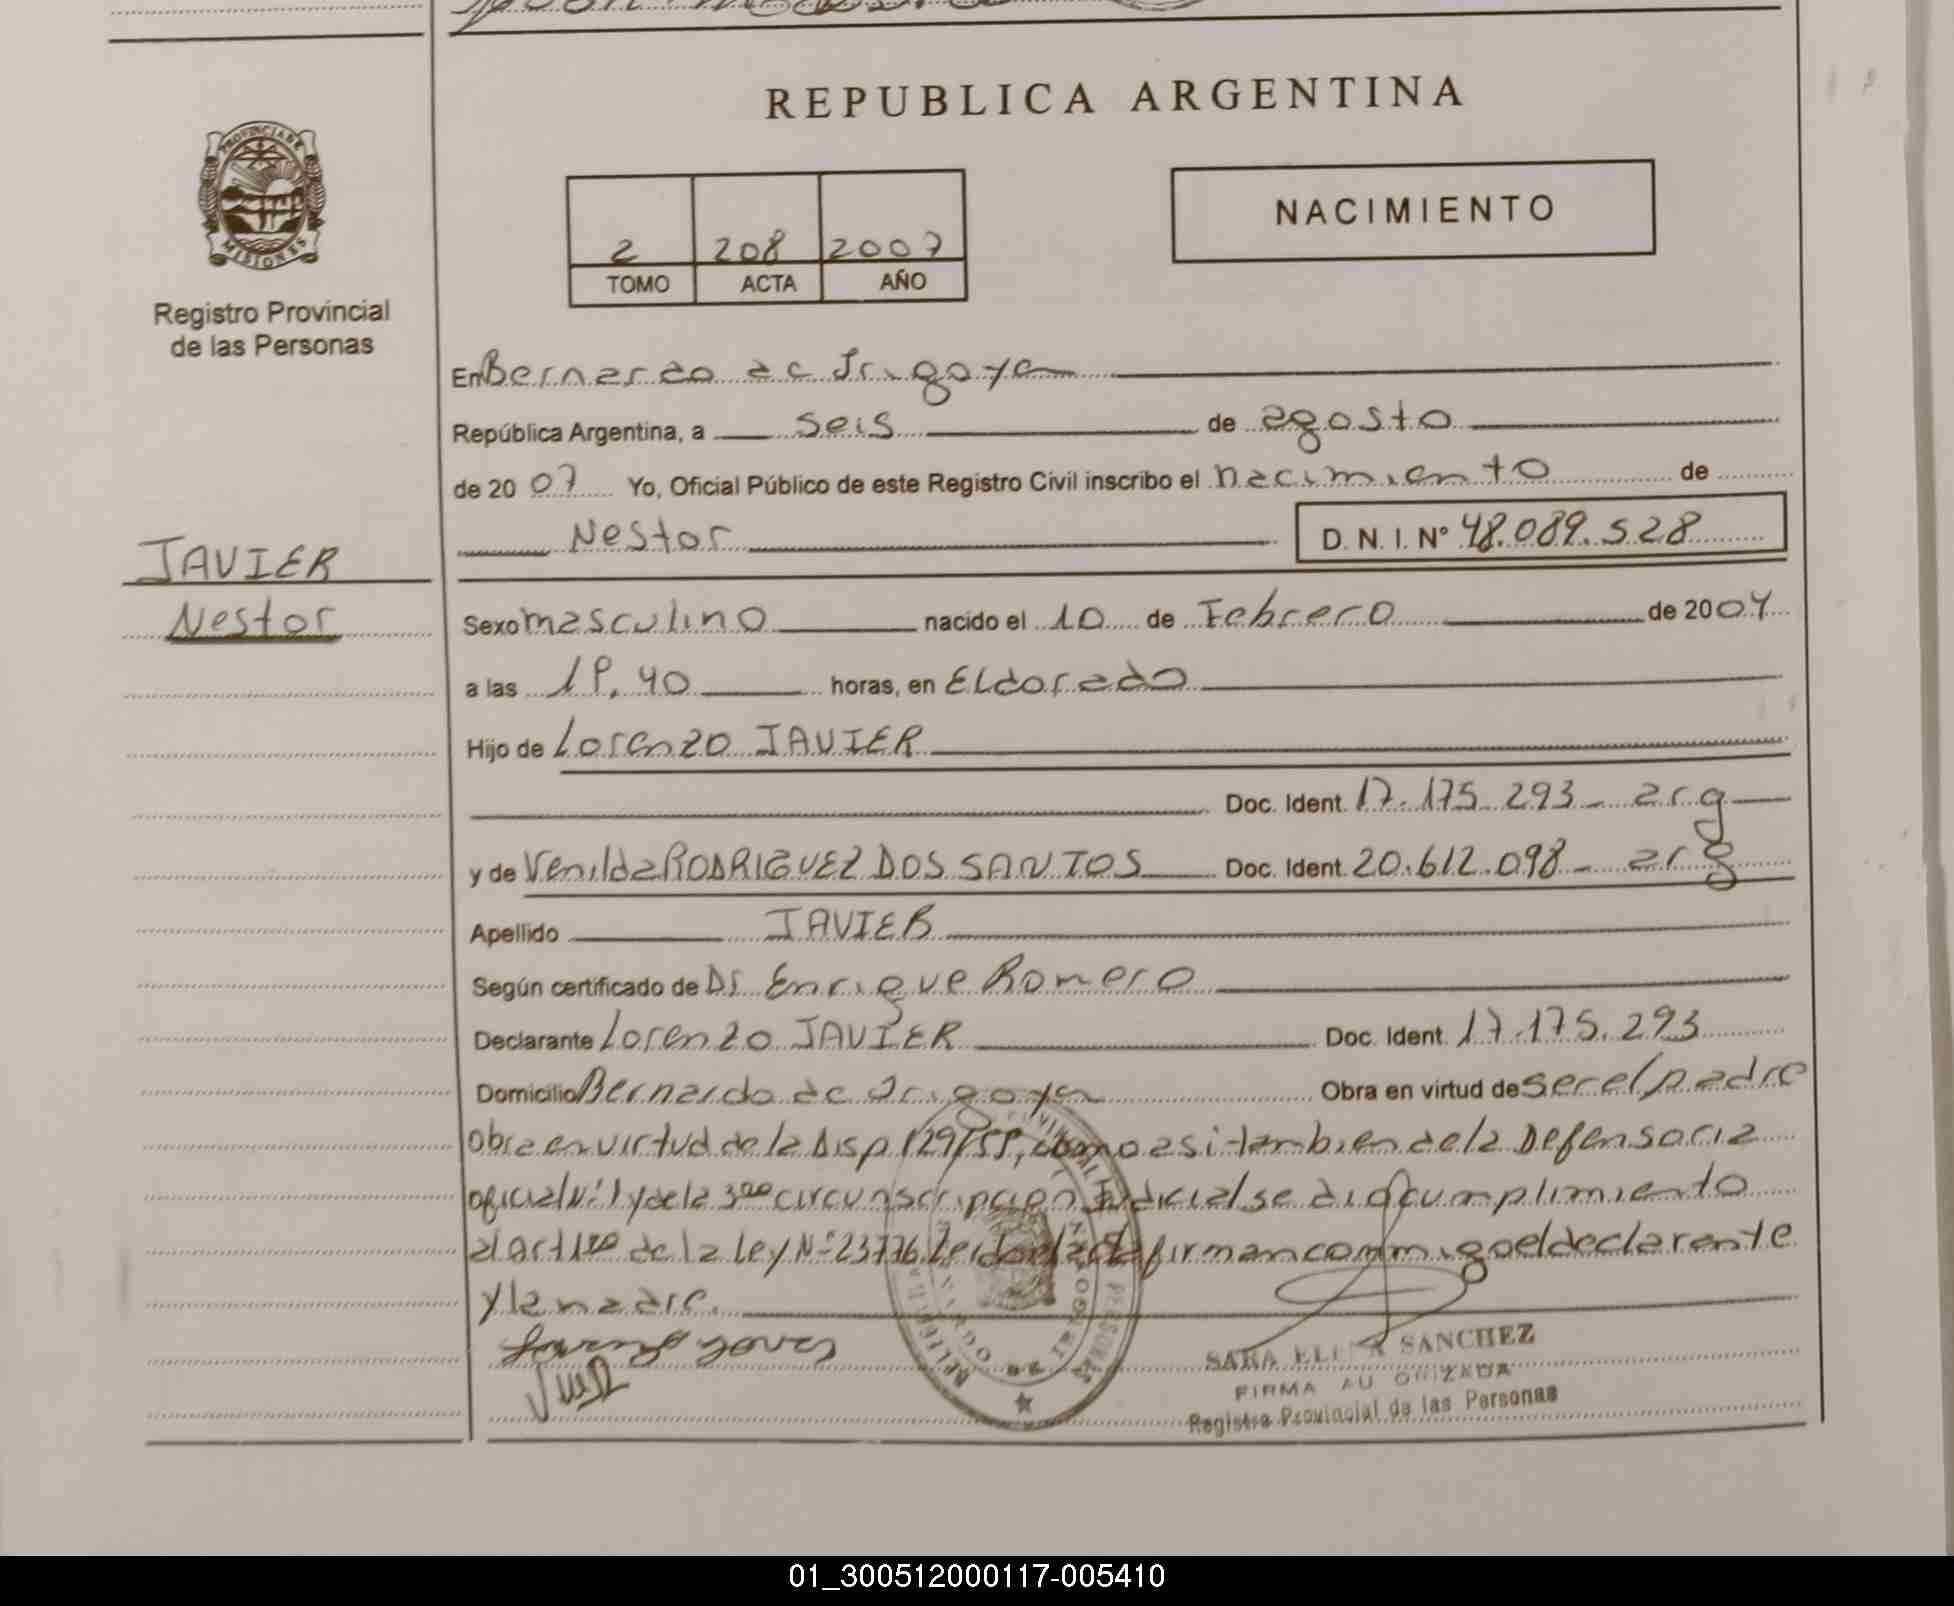 REPUBLICA ARGENTINA
PROVINCIA DE
MISIONES
Registro Provincial
de las Personas
2 208 2007
TOMO ACTA AÑO
NACIMIENTO
En Bernardo de Irigoyen
República Argentina, a seis de agosto
de 2007 Yo, Oficial Público de este Registro Civil inscribo el nacimiento de
Nestor D. N. I. Nº 48.089.528
JAVIER
Nestor
Sexo masculino nacido el 10 de Febrero de 2004
a las 19.40 horas, en Eldorado
Hijo de Lorenzo JAVIER
Doc. Ident. 17.175.293 - arg
y de Venilda RODRIGUEZ DOS SANTOS Doc. Ident. 20.612.098 - arg
Apellido JAVIER
Según certificado de Dr Enrique Romero
Declarante Lorenzo JAVIER Doc. Ident. 17.175.293
Domicilio Bernardo de Irigoyen Obra en virtud de ser el padre
obra en virtud de la Disp 129/99, como asi tambien de la Defensoria
oficial Nº 1 y de la 3ra circunscripcion Judicial se dio cumplimiento
al art 1ro de la Ley Nº 23776. Leido el acta firman conmigo el declarante
y la madre.
SARA ELENA SANCHEZ
FIRMA AUTORIZADA
Registro Provincial de las Personas
01_300512000117-005410